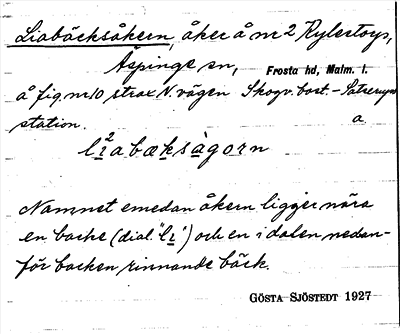 Liabäcksåkern, åker å nr 2 Rylestorp,
Äspinge sn, Frosta hd, Malm. l.
å fig. nr 10 strax N. vägen Skogv. bost. - Sätserups
station. a.
li²abæksågorn
Namnet emedan åkern ligger nära
en backe (dial. "li") och en i dalen nedan-
för backen rinnande bäck.
GÖSTA SJÖSTEDT 1927